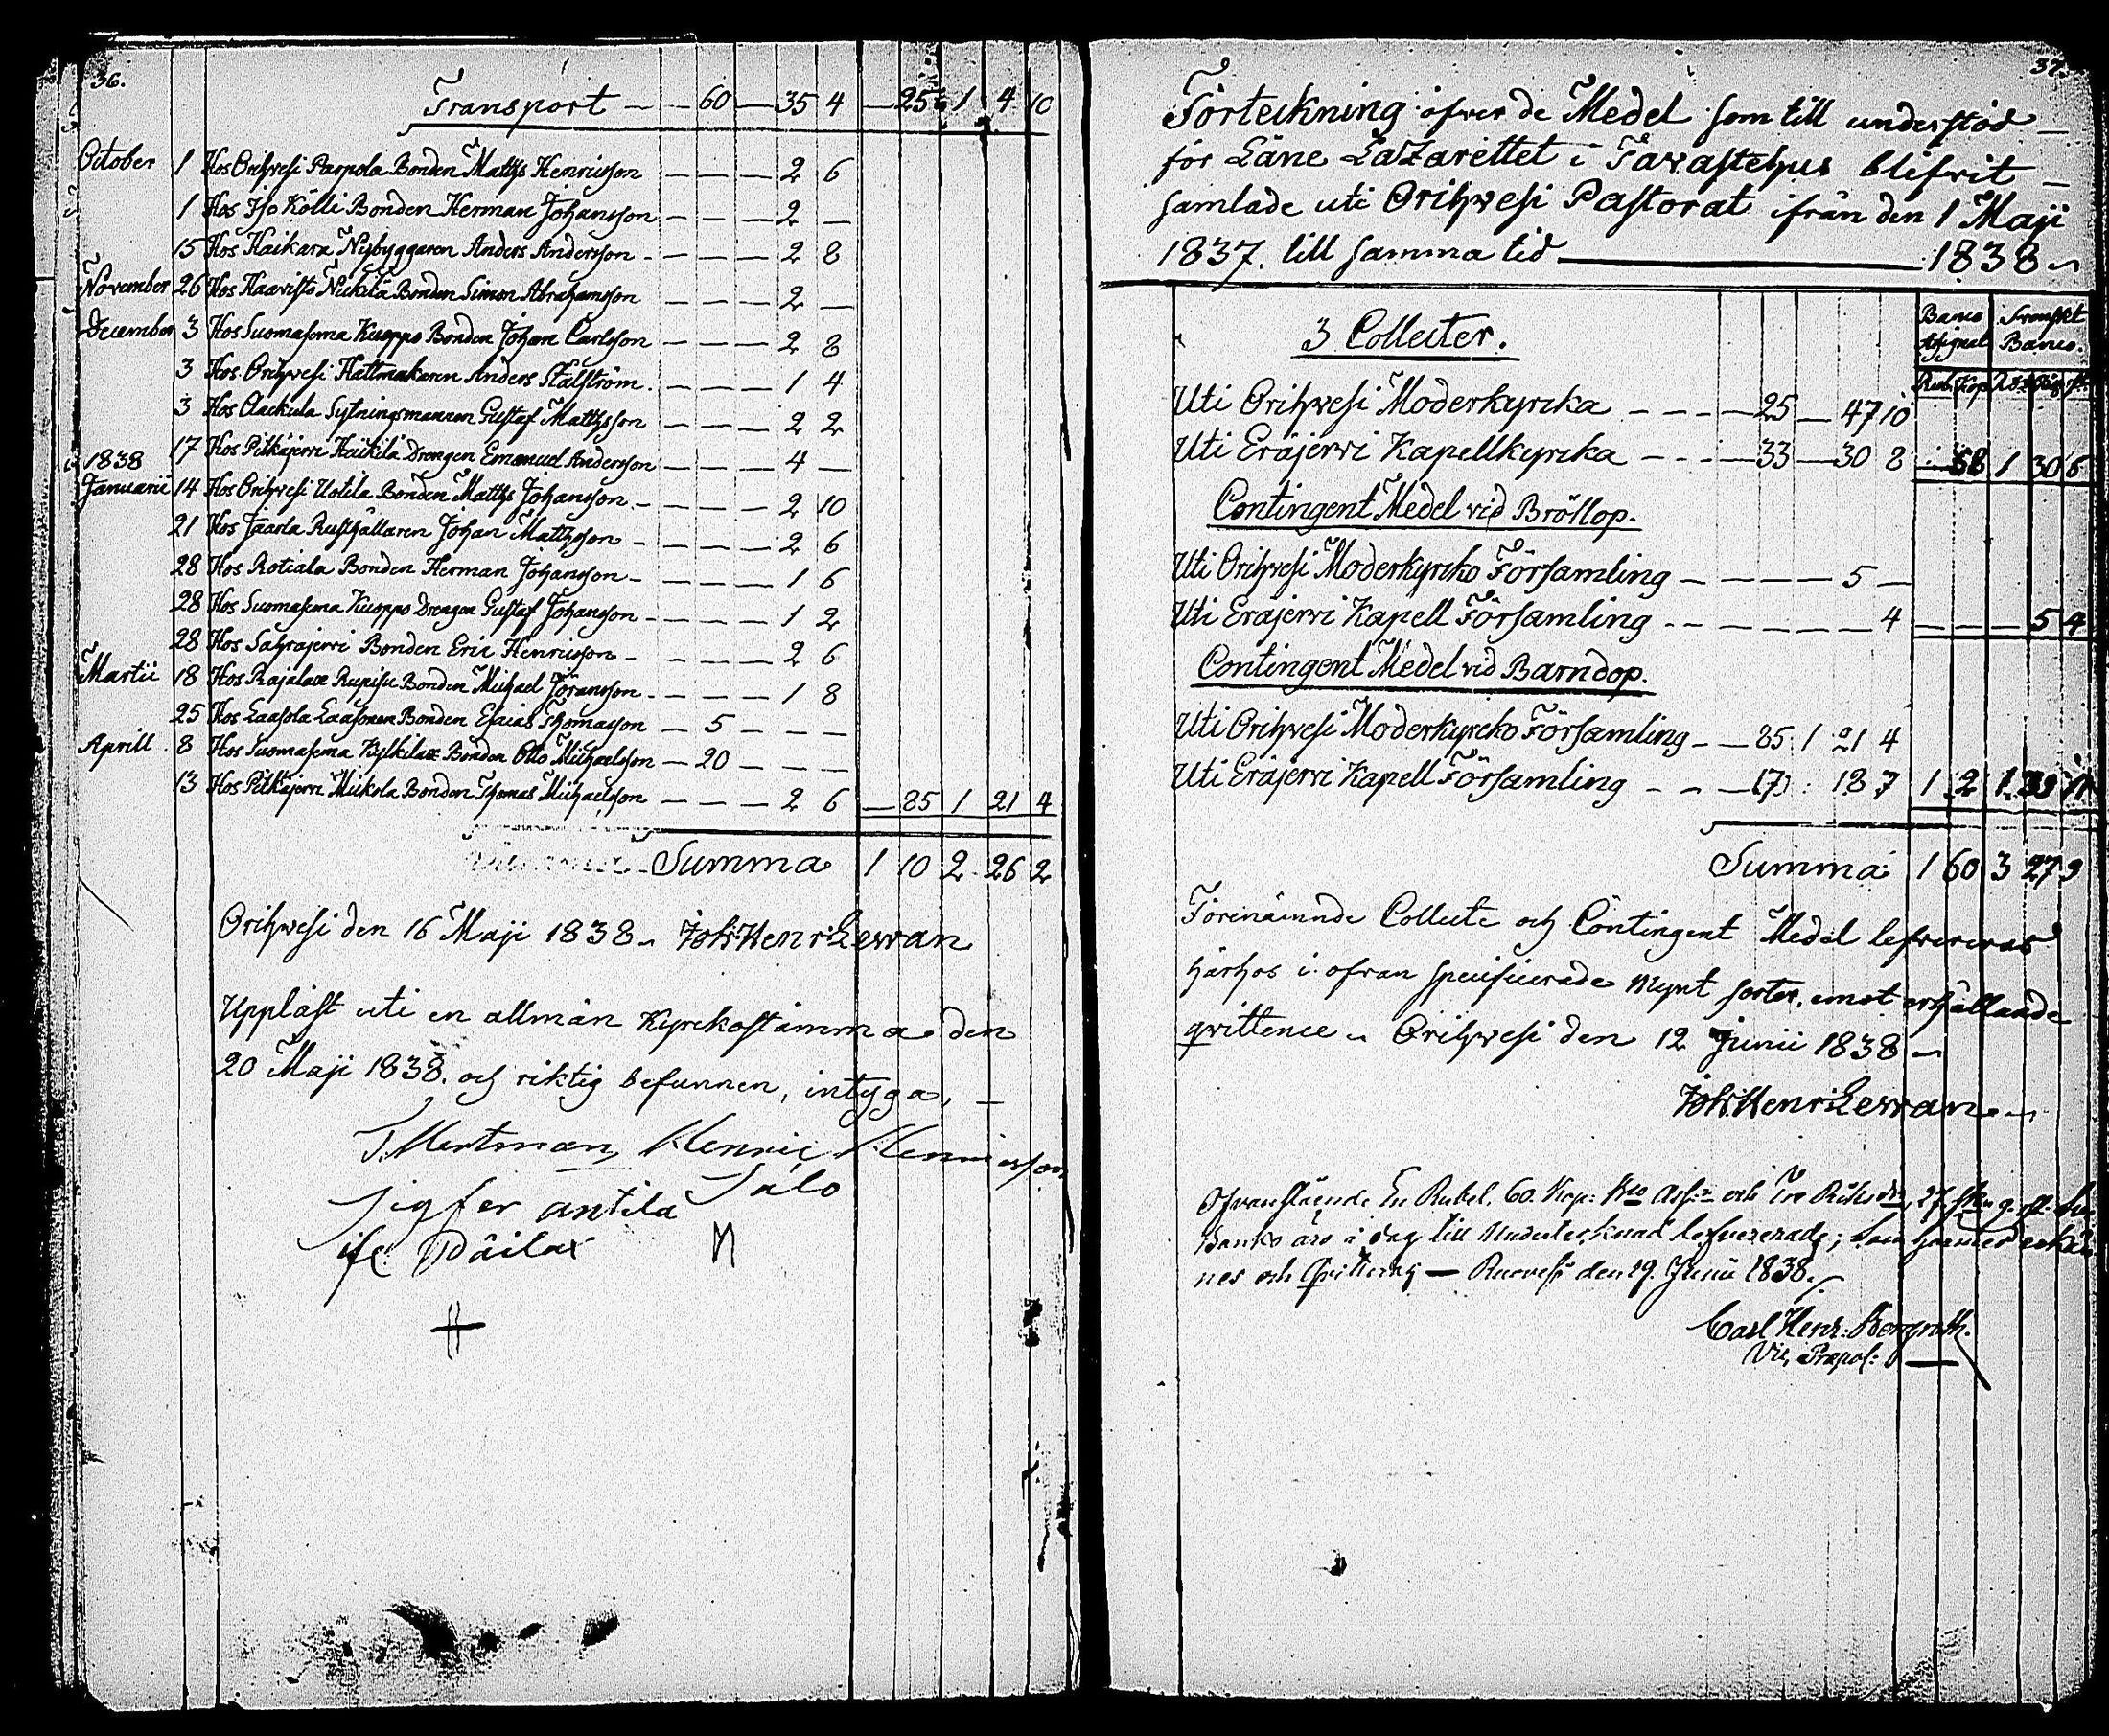 36.
Transport — — 60 — 35 4 — 25 1 4 10
October 1 Hos Orihvesi Parpola Bonden Matths Henricsson — — — 2 6
1 Hos Iso Kölli Bonden Herman Johansson — — — 2 —
15 Hos Haikara Nybyggaren Anders Andersson — — — 2 8
November 26 Hos Haavisto Nickilä Bonden Simon Abrahamsson — — — 2 —
December 3 Hos Suomasema Kuoppo Bonden Johan Carlsson — — — 2 8
3 Hos Orihvesi Hattmakaren Anders Stålström — — — 1 4
3 Hos Olackula Sytningsmannen Gustaf Mattsson — — — 2 2
17 Hos Pitkäjervi Heikilä Drengen Emanuel Andersson — — — 4 —
1838
Januarii 14 Hos Orihvesi Uotila Bonden Matths Johansson — — — 2 10
21 Hos Jaarla Rusthållaren Johan Mattsson — — — 2 6
28 Hos Rotiala Bonden Herman Johansson — — — 1 6
28 Hos Suomasema Kuoppo Drengen Gustaf Johansson — — — 1 2
28 Hos Sahrajervi Bonden Eric Henricsson — — — 2 6
Martii 18 Hos Rajalax Rupisu Bonden Michael Jöransson — — — 1 8
25 Hos Laasola Laasonen Bonden Esaias Thomasson — 5 — — —
Aprill 8 Hos Suomasema Kylkilax Bonden Otto Michaelsson — 20 — — —
13 Hos Pitkäjervi Mickola Bonden Thomas Michaelsson — — — 2 6 — 85 1 21 4
Summa 1 10 2 26 2
Orihvesi den 16 Maji 1838. Joh: Henr: Lewan
Uppläst uti en allmän Kyrckostämma den
20 Maji 1838. och riktig befunnen, intyga, —
J. Mertman, Henric Henricsson
Salo
Sigfer antila
Päilax
37.
Förteckning öfver de Medel som till understöd —
för Läne Lazarettet i Tavastehus blifvit —
samlade uti Orihvesi Pastorat ifrån den 1 Maji
1837. till samma tid — 1838
Banco Assignat. Svenskt Banco.
Rub. Kop. R:d
3 Collecter.
Uti Orihvesi Moderkyrcka — — — 25 — 47 10
Uti Eräjervi Kapellkyrcka — — — 33 — 30 8 — 58 1 30 6
Contingent Medel vid Bröllop.
Uti Orihvesi Moderkyrcko Församling — — — — 5 —
Uti Eräjervi Kapell Församling — — — — — 4 — — — 5 4
Contingent Medel vid Barndop.
Uti Orihvesi Moderkyrcko Församling — — 85 1 21 4
Uti Eräjervi Kapell Församling — — 17 : 18 7 1 2 1 39 11
Summa 1 60 3 27 9
Förenämnde Collecte och Contingent Medel lefvereras
härhos i ofvan specificerade mynt sorter, emot erhållande
qvittence. Orihvesi den 12 Junii 1838
Joh: Henr: Lewan.
Ofvanstående En Rubel. 60. Kop: B:co Ass:r och Tre Riksd:r 27. sk: 9. rst.
Banko äro i dag till Undertecknad lefvererade; som härmed erkän-
nes och Qvitteras — Ruovesi den 19. Junii 1838.
Carl Henr: Bergroth.
Vic. Præpos: